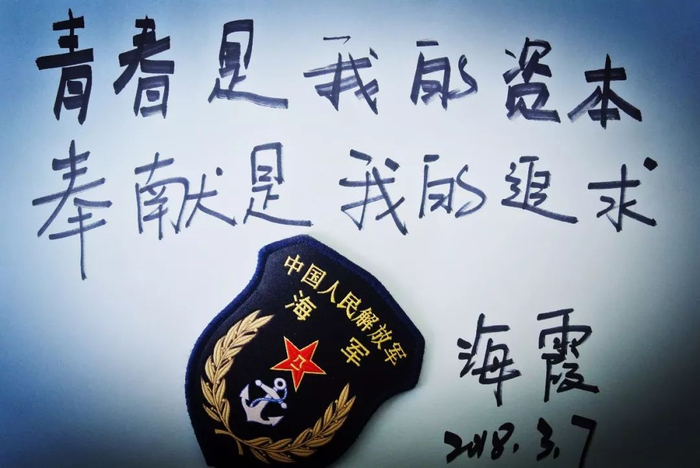 青春是我的资本
奉献是我的追求
中国人民解放军
海军
八一
海霞
2018.3.7